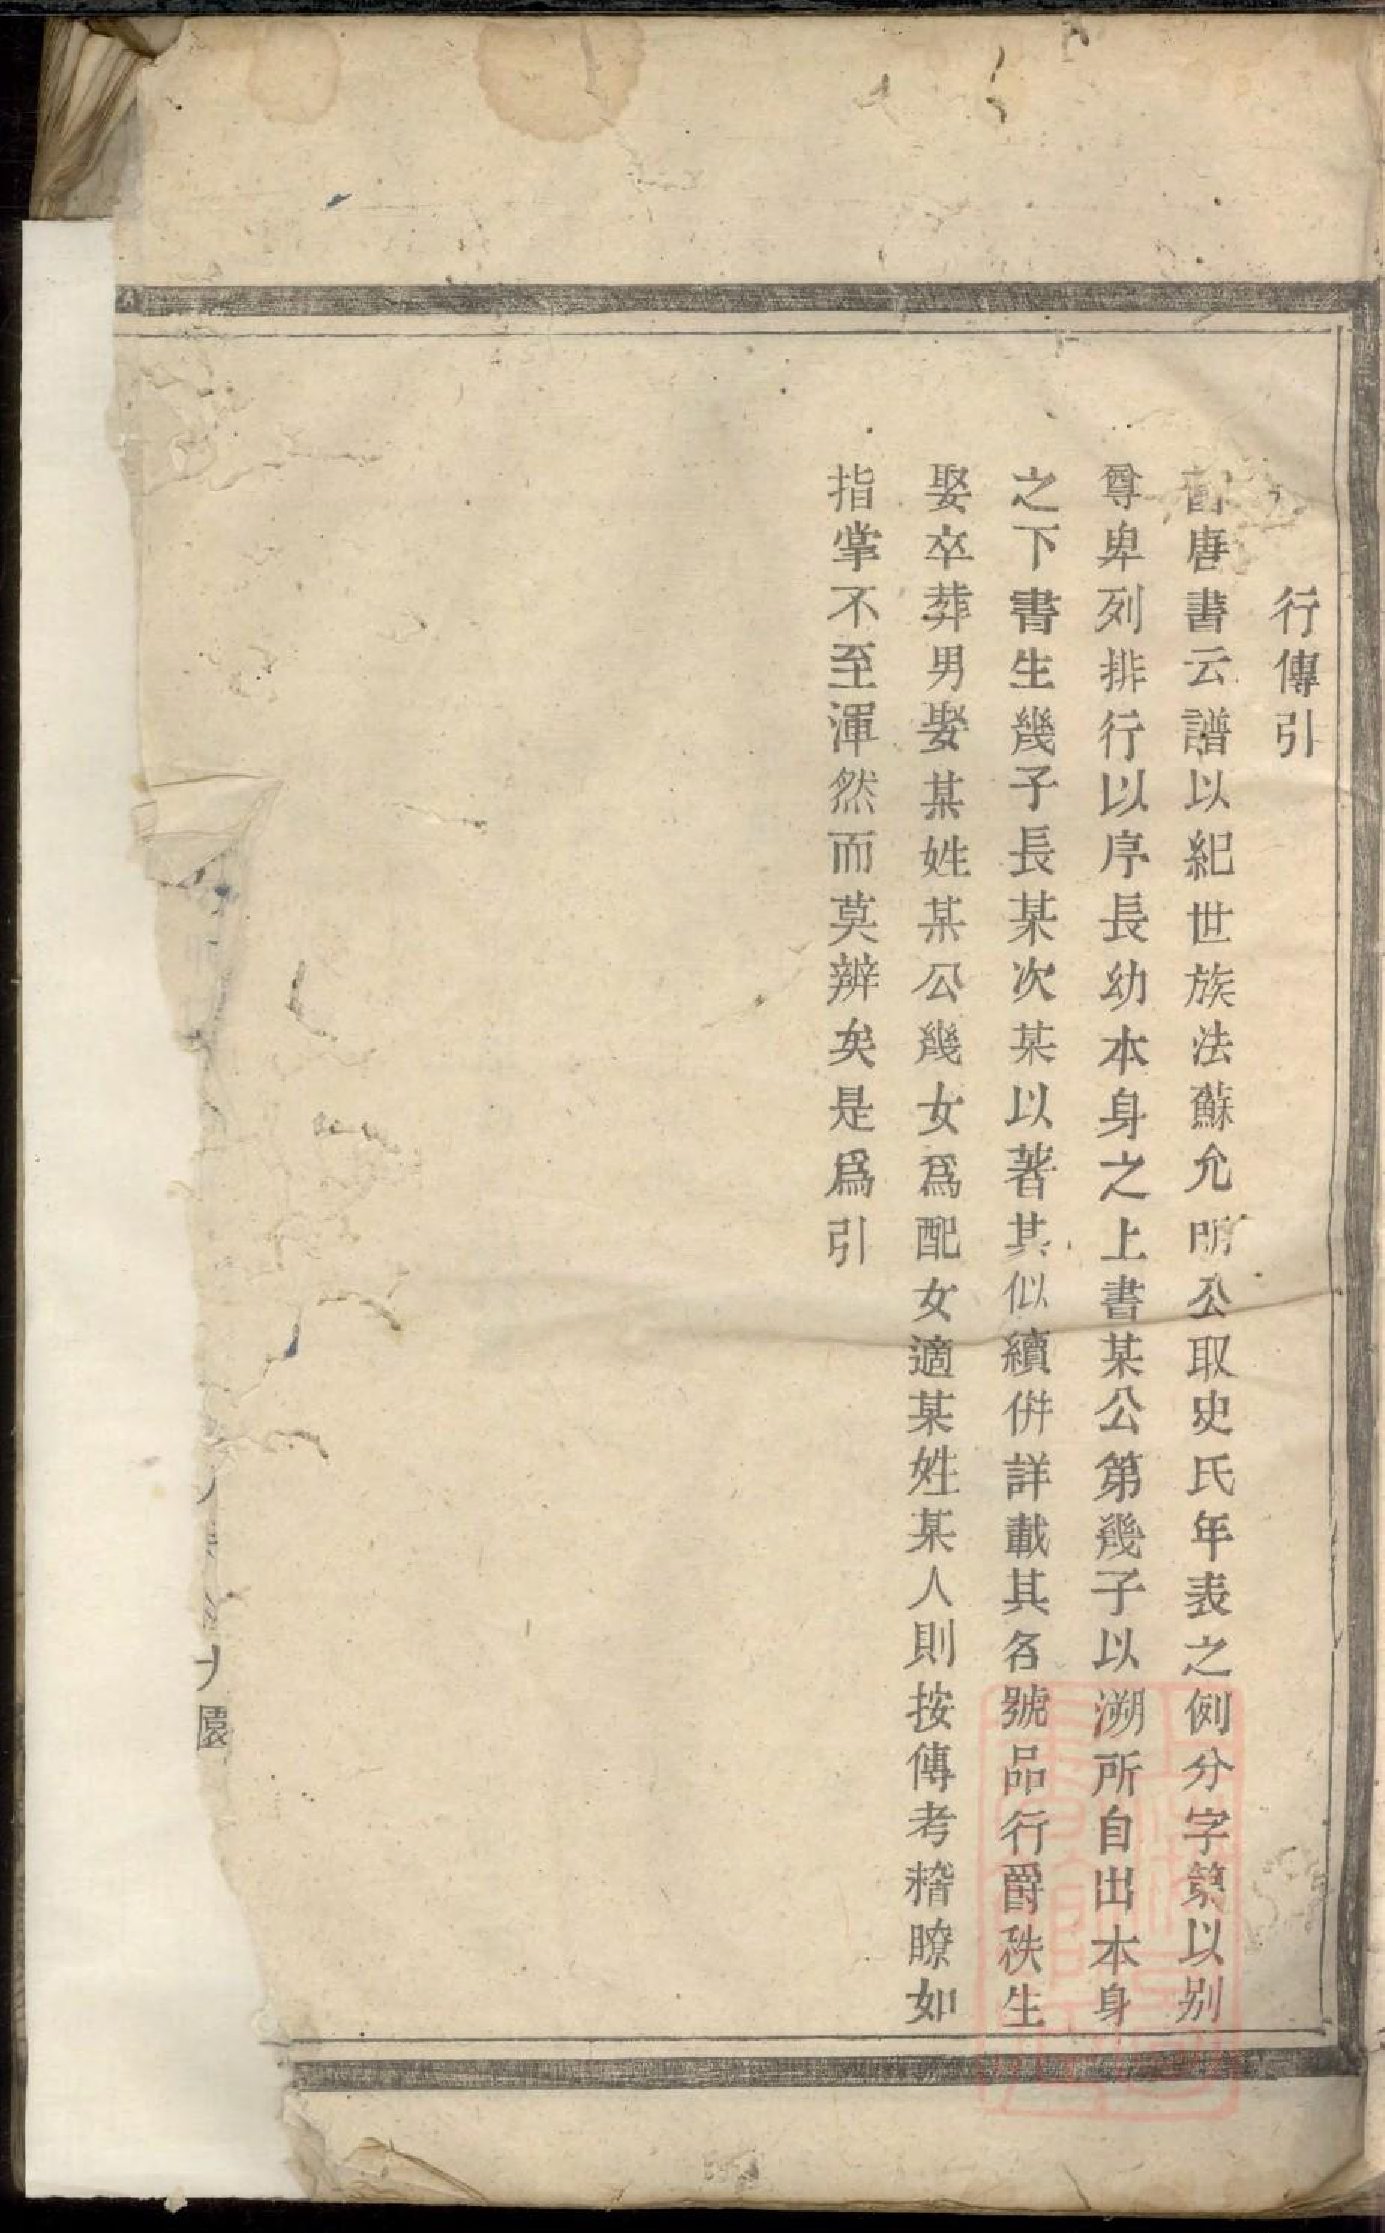 行傳引
舊唐書云譜以紀世族法蘇允明公取史氏年表之例分字第以别
尊卑列排行以序長幼本身之上書某公第幾子以溯所自出本身
之下書生幾子長某次某以著其似續併詳載其名號品行爵秩生
娶卒葬男娶某姓某公幾女爲配女適某姓某人則按傳考稽瞭如
指掌不至渾然而莫辨矣是爲引